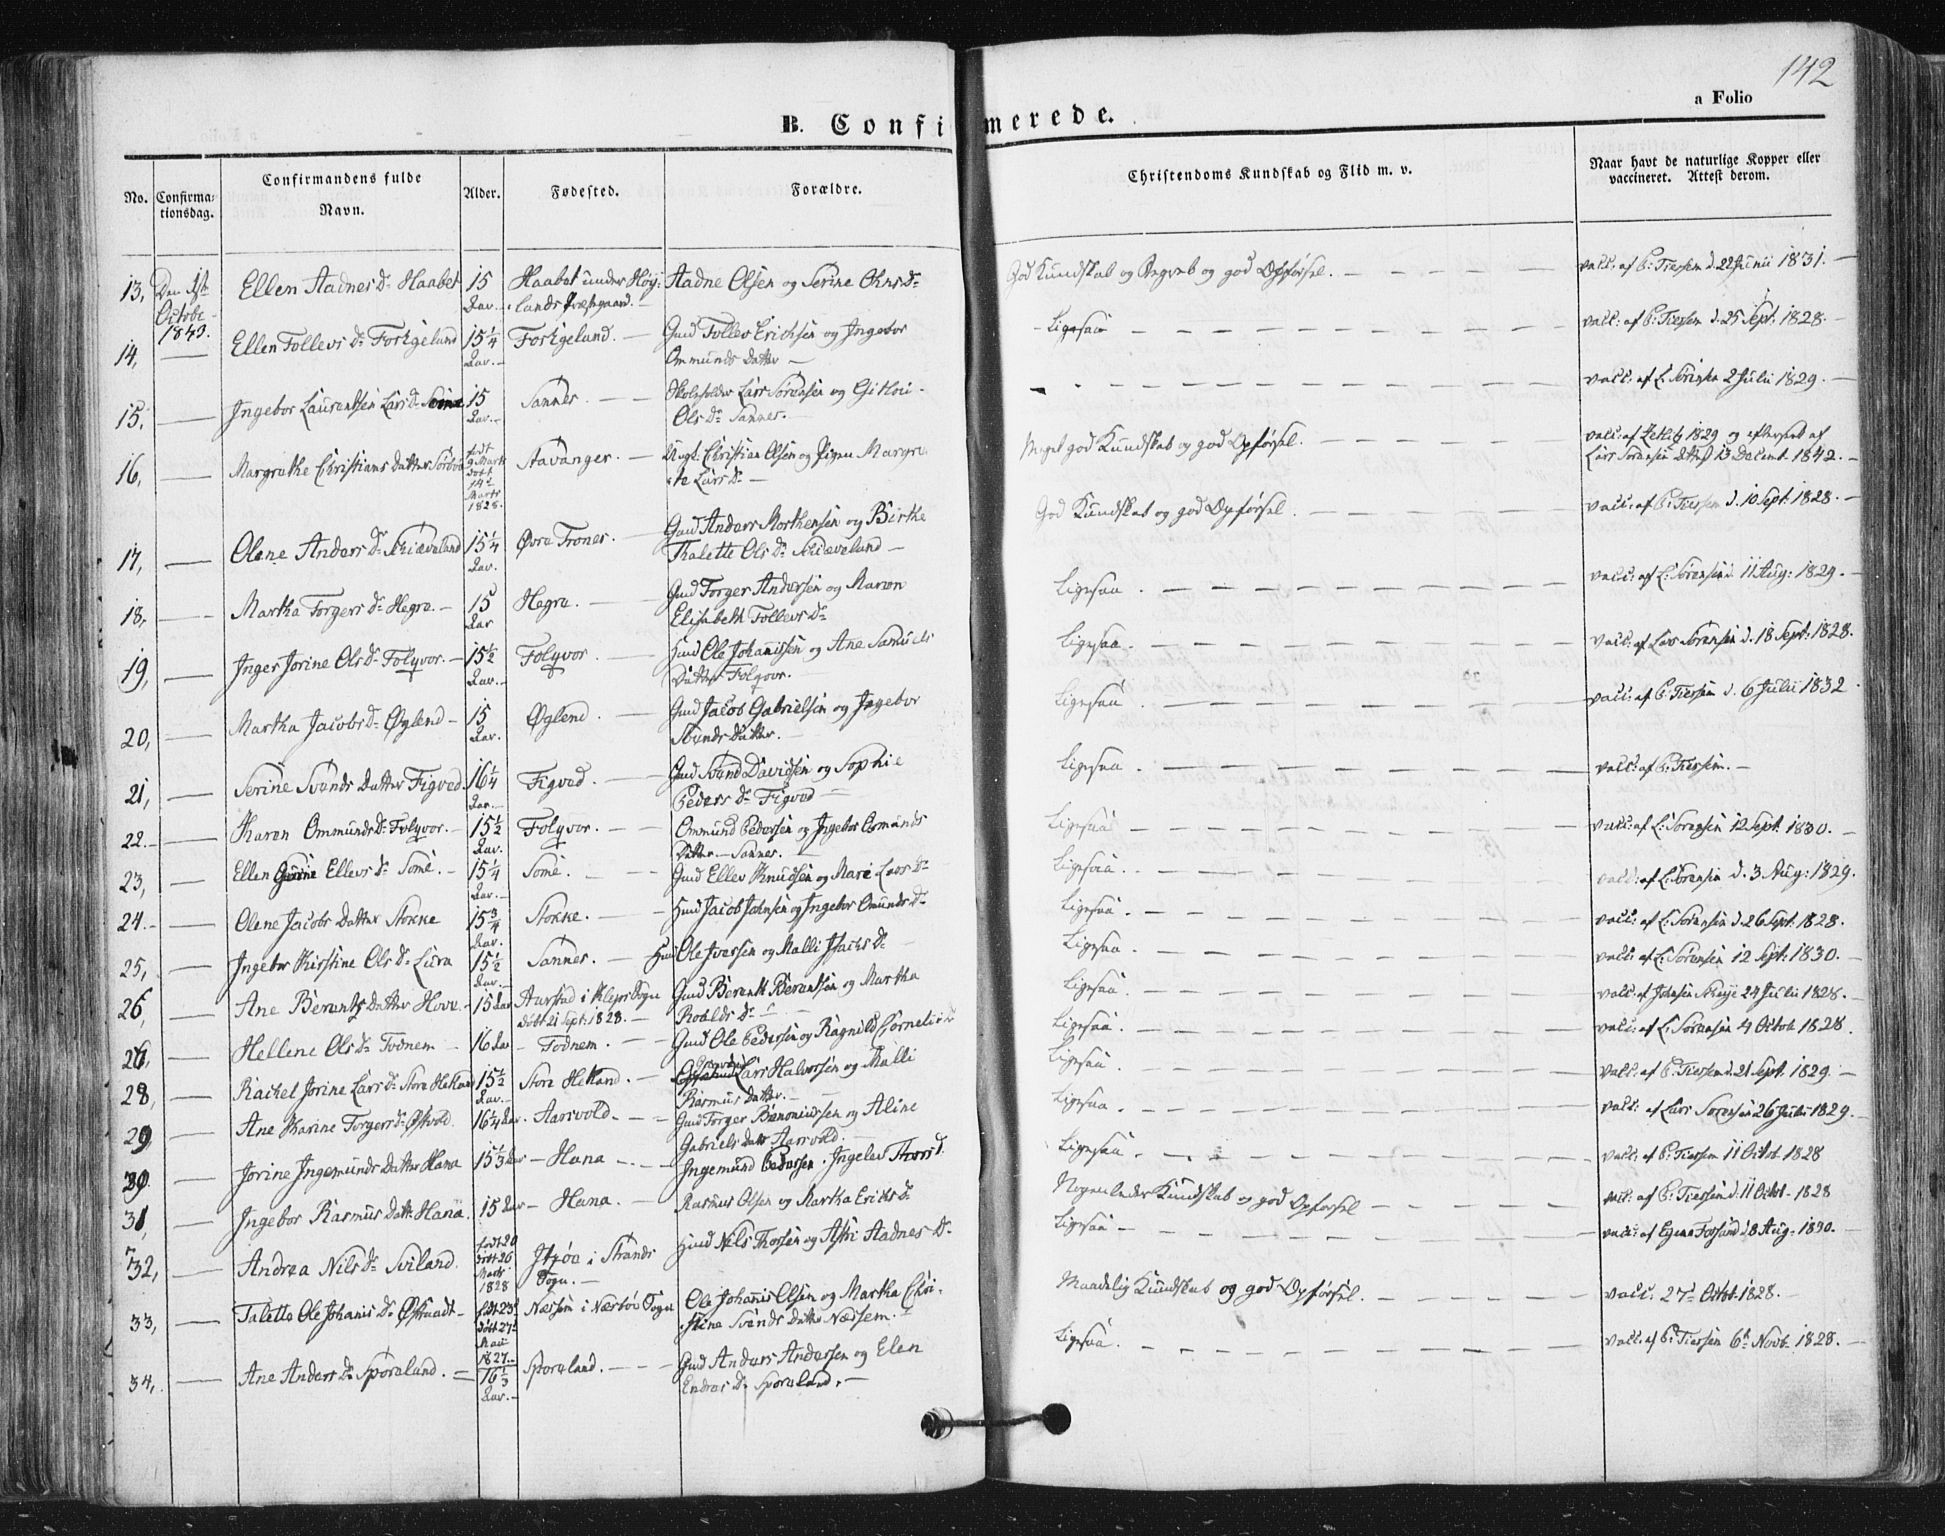 142
a Folio
B. Confirmerede.
No. Confirma-tionsdag. Confirmandens fulde Navn. Alder. Fødested. Forældre. Christendoms Kundskab og Flid m. v. Naar havt de naturlige Kopper eller vaccineret. Attest derom.
13, Den 1st Octobr 1843. Ellen Aadnes Dr Haabet 15 Aar Haabet under Høilands Præstegaard. Aadne Olsen og Serine Dr God Kundskab og Begreb og god Opførsel. vacc: af P: Tiersen d. 22 Junii 1831.
14, Ellen Tollevs Dr Foskgeland 15 1/4 Aar. Foskgeland. Gmd Tollev Erichsen og Ingebor Ommunds Datter Ligesaa vacc: af P: Tiersen d. 25 Sept: 1828.
15, Ingebor Laurentsen Lars Dr 15 Aar. Sannes. Skoleholder Lars Sørensen og Gitlou Ols Dr Sannes. vacc: af L: Sørensen 2 Julii 1829.
16, Margrethe Christians Datter født 9 Marts døbt 14de Marts 1828. Stavanger. Ungk: Christian Olsen og Pigen Margrete Lars Dr Meget god Kundskab og god Opførsel. vacc: af Zetlitz 1829 og efterseet af Lars Sørensen Attest 13 Decemb. 1842.
17, Olene Anders Dr Skiæveland 15 1/4 Aar. Øvre Trones. Gmd Anders Morthensen og Birthe Thalette Ols Dr Skiæveland God Kundskab og god Opførsel. vacc: af P: Tiersen d. 10 Sept: 1828.
18, Martha Torgers Dr Hegre. 15 Aar Hegre. Gmd Torger Andersen og Maren Elisabeth Tollevs Dr Ligesaa. vacc: af L: Sørensen d. 11 Aug: 1829.
19, Inger Jorine Ols Dr Folqvor. 15 1/2 Aar. Folqvor. Hmd Ole Johanissen og Ane Samuels Datter Folqvor. Ligesaa. vacc: af Lars Sørensen d. 18 Sept: 1828.
20, Martha Jacobs Dr Øglend 15 Aar. Øglend. Gmd Jacob Gabrielsen og Ingebor Svends Datter. Ligesaa. vacc: af P: Tiersen d. 6 Julii 1832
21, Serine Svends Datter Figved 16 1/4 Aar. Figved. Gmd Svend Davidsen og Sophie Peders Dr Figved Ligesaa. vacc: af P: Tiersen.
22. Karen Ommunds Dr Folqvor. 15 1/2 Aar. Folqvor. Ommund Pedersen og Ingebor Osmunds Datter Sannes. Ligesaa. vacc: af L: Sørensen 12 Sept: 1830.
23, Ellen Gurine Ellevs Dr Some. 15 1/4 Aar. Some. Gmd Ellev Knudsen og Mari Lars Dr Ligesaa. vacc: af L: Sørensen d. 3 Aug: 1829.
24. Olene Jacobs Datter Stokke 15 3/4 Aar. Stokke. Hmd Jacob Johnsen og Ingebor Omunds Dr Ligesaa. vacc: af L: Sørensen d. 26 Sept: 1828.
25, Ingebor Kirstine Ols Dr Lura 15 1/2 Aar. Sannes. Hmd Ole Iversen og Malli Isachs Dr Ligesaa. vacc: af L: Sørensen 12 Sept: 1830.
26, Ane Berents Datter Hove. 15 Aar Aarstad i Kleps Sogn døbt 21 Sept: 1828. Gmd Berent Berentsen og Martha Roalds Dr Ligesaa. vacc: af Johnsen Skeije 24 Julii 1828.
26, Hellene Ols Dr Todnem 16 Aar Todnem. Gmd Ole Pedersen og Ragnild Ligesaa. vacc: af L: Sørensen 4 Octob. 1828.
28, Rachel Jorine Lars Dr Store Hetland 15 1/2 Aar. Store Hetland. Lars Halvorsen og Malli Rasmus Datter. Ligesaa. vacc: af P: Tiersen d. 21 Sept: 1829.
29 Ane Karine Torgers Dr 16 1/4 Aar. Aarsvold. Gmd Torger og Aline Gabriels Datr Aarsvold. Ligesaa. vacc: af Lars Sørensen 26 Julii 1829.
30 Jorine Ingemunds Datter Hana 15 1/3 Aar Hana Ingemund Pedersen. Ingelev Thores d. Ligesaa. vacc: af P: Tiersen 11 Octob. 1828
31, Ingebor Rasmus Datr Hana. 15 Aar Hana. Rasmus Olsen og Martha Erichs Dr Nogenledes Kundskab og god Opførsel vacc: af P: Tiersen d: 11 Octob. 1828
32, Andrea Nils Dr Sviland. født 20 døbt 26 Marts 1828 i Strands Sogn. Hmd Nils Thorsen og Astri Aadnes Dr Ligesaa vacc: af Forsand d. 8 Aug: 1830.
33, Talette Ole Johanis Dr født 23 døbt 27 Maii 1827. Næssem i Næsbøe Sogn Ole Johanis Olsen og Martha Christine Svends Datter Næssem. Maadelig Kundskab og god Opførsel. vacc. 27de Octob. 1828.
34, Ane Anders Dr Sporaland. 16 1/3 Aar. Sporaland. Gmd Anders Andersen og Elen Endres Dr Sporaland. Ligesaa. vacc: af P: Tiersen 6te Novb. 1828.